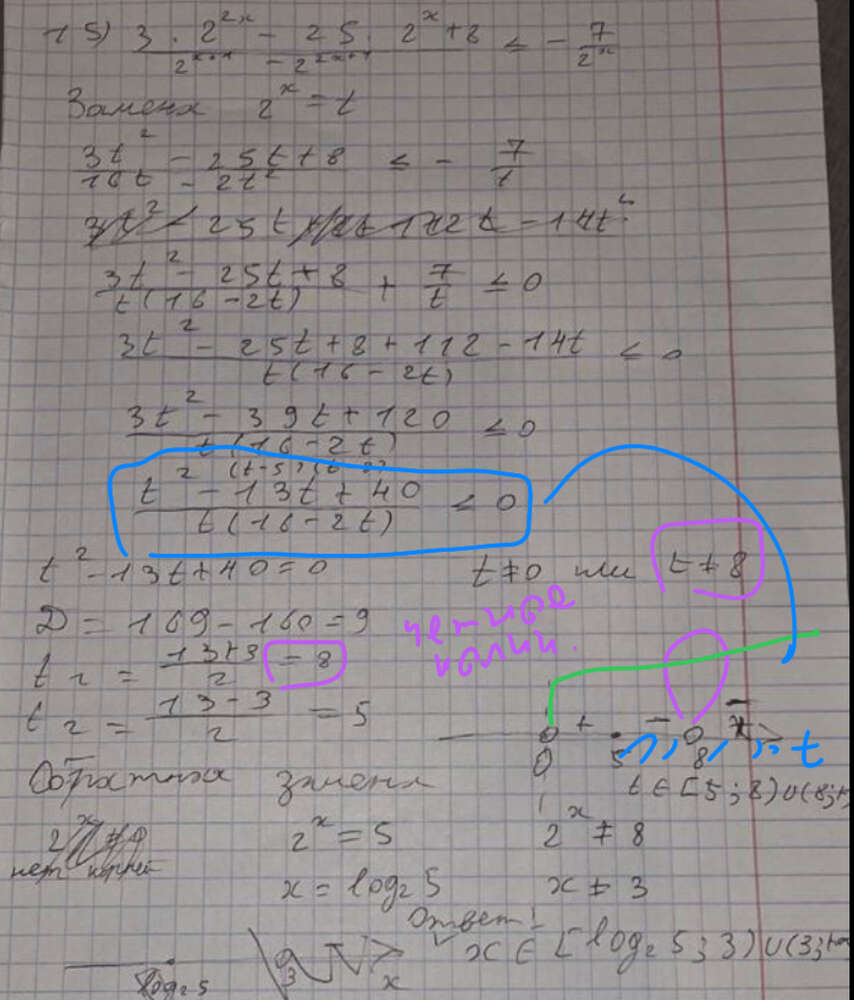 15) (3 · 2^{2x} - 25 · 2^x + 8) / (2^{x+4} - 2^{2x+1}) ≤ - 7/2^x
Замена 2^x = t
(3t^2 - 25t + 8) / (16t - 2t^2) ≤ - 7/t
(3t^2 - 25t + 8) / (t(16 - 2t)) + 7/t ≤ 0
(3t^2 - 25t + 8 + 112 - 14t) / (t(16 - 2t)) ≤ 0
(3t^2 - 39t + 120) / (t(16 - 2t)) ≤ 0
(t^2 - 13t + 40) / (t(16 - 2t)) ≤ 0
t^2 - 13t + 40 = 0 t ≠ 0 или t ≠ 8
D = 169 - 160 = 9
четное
колич.
t_1 = (13+3)/2 = 8
t_2 = (13 - 3)/2 = 5
+ - -
0 5 8 t
Обратная замена
t ∈ [5;8)∪(8;+
нет корней
2^x = 5 2^x ≠ 8
x = log_2 5 x ≠ 3
Ответ:
x ∈ [log_2 5; 3)∪(3;+∞
log_2 5 3 x